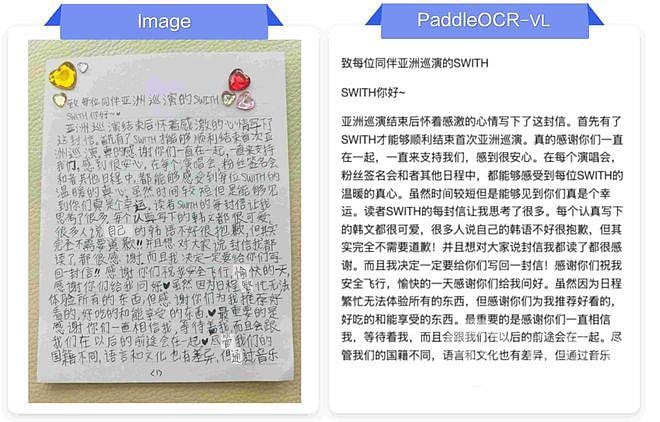 Image
致每位同伴亚洲巡演的SWITH
SWITH你好~♥
亚洲巡演结束后怀着感激的心情写下了
这封信.首先有了SWITH才能够顺利结束首次亚
洲巡演.真的感谢你们一直在一起,一直来支持
我们,感到很安心.在每个演唱会,粉丝签名会
和者其他日程中,都能够感受到每位SWITH的
温暖的真心.虽然时间较短但是能够见
到你们真是个幸运.读者SWITH的每封信让我
思考了很多.每个认真写下的韩文都很可爱,
很多人说自己的韩语不好很抱歉,但其实
完全不需要道歉!!并且想对大家说封信我都
读了都很感谢.而且我决定一定要给你们写
回一封信!!感谢你们祝我安全飞行,愉快的一天,
感谢你们给我问好♥虽然因为日程繁忙无法
体验所有的东西,但感谢你们为我推荐好
看的,好吃的和能享受的东西.♥最重要的是
感谢你们一直相信我,等待着我,而且会跟
我们在以后的前途会在一起♥尽管我们的
国籍不同,语言和文化也有差异,但通过音乐
<1>
PaddleOCR-VL
致每位同伴亚洲巡演的SWITH
SWITH你好~
亚洲巡演结束后怀着感激的心情写下了这封信。首先有了
SWITH才能够顺利结束首次亚洲巡演。真的感谢你们一直
在一起，一直来支持我们，感到很安心。在每个演唱会，
粉丝签名会和者其他日程中，都能够感受到每位SWITH的
温暖的真心。虽然时间较短但是能够见到你们真是个幸
运。读者SWITH的每封信让我思考了很多。每个认真写下
的韩文都很可爱，很多人说自己的韩语不好很抱歉，但其
实完全不需要道歉！并且想对大家说封信我都读了都很感
谢。而且我决定一定要给你们写回一封信！感谢你们祝我
安全飞行，愉快的一天感谢你们给我问好。虽然因为日程
繁忙无法体验所有的东西，但感谢你们为我推荐好看的，
好吃的和能享受的东西。最重要的是感谢你们一直相信
我，等待着我，而且会跟我们在以后的前途会在一起。尽
管我们的国籍不同，语言和文化也有差异，但通过音乐